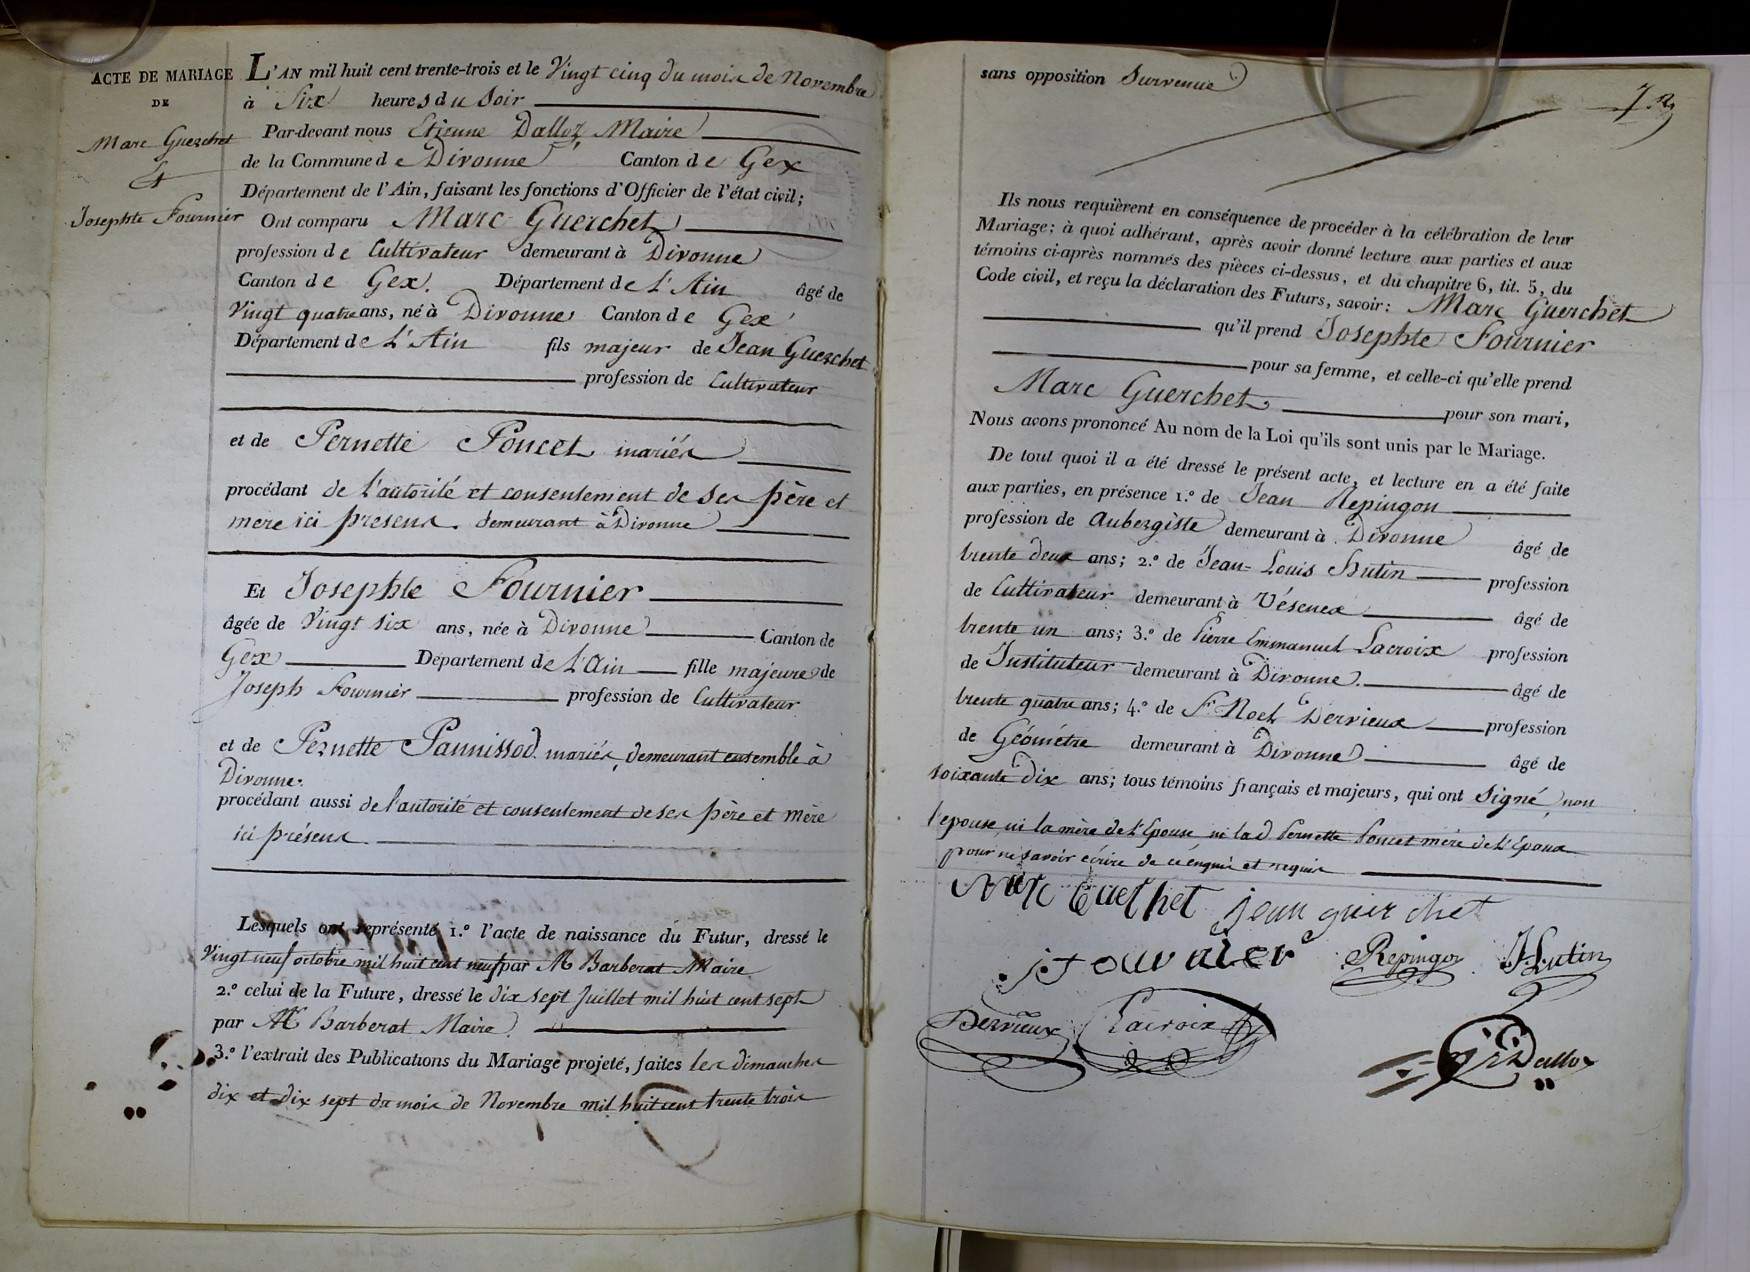 ACTE DE MARIAGE
DE
Marc Guerchet
&
Josephte Fournier
L'AN mil huit cent trente-trois et le Vingt cinq du mois de Novembre
à Six heures du Soir
Par-devant nous Etienne Dalloz, Maire
de la Commune de Divonne Canton de Gex
Département de l'Ain, faisant les fonctions d'Officier de l'état civil;
Ont comparu Marc Guerchet
profession de Cultivateur demeurant à Divonne
Canton de Gex. Département de L'Ain âgé de
Vingt quatre ans, né à Divonne Canton de Gex
Département de L'Ain fils majeur de Jean Guerchet
profession de Cultivateur
et de Pernette Poncet mariés
procédant de l'autorité et consentement de ses père et
mere ici presens. demeurant à Divonne
Et Josephte Fournier
âgée de Vingt six ans, née à Divonne Canton de
Gex Département de L'Ain fille majeure de
Joseph Fournier profession de Cultivateur
et de Pernette Pannissod mariés, demeurant ensemble à
Divonne.
procédant aussi de l'autorité et consentement de ses père et mère
ici présens
Lesquels ont représenté 1.º l'acte de naissance du Futur, dressé le
Vingt neuf octobre mil huit cent neuf par M Barberat Maire
2.º celui de la Future, dressé le dix sept Juillet mil huit cent sept
par M Barberat Maire
3.º l'extrait des Publications du Mariage projeté, faites les dimanches
dix et dix sept du mois de Novembre mil huit cent trente trois
sans opposition Survenue
Ils nous requièrent en conséquence de procéder à la célébration de leur
Mariage; à quoi adhérant, après avoir donné lecture aux parties et aux
témoins ci-après nommés des pièces ci-dessus, et du chapitre 6, tit. 5, du
Code civil, et reçu la déclaration des Futurs, savoir: Marc Guerchet
qu'il prend Josephte Fournier
pour sa femme, et celle-ci qu'elle prend
Marc Guerchet pour son mari,
Nous avons prononcé Au nom de la Loi qu'ils sont unis par le Mariage.
De tout quoi il a été dressé le présent acte, et lecture en a été faite
aux parties, en présence 1.º de Jean Repingon
profession de Aubergiste demeurant à Divonne âgé de
trente deux ans; 2.º de Jean-Louis Hutin profession
de Cultivateur demeurant à Vésenex âgé de
trente un ans; 3.º de Pierre Emmanuel Lacroix profession
de Instituteur demeurant à Divonne. âgé de
trente quatre ans; 4.º de F Noel Dervieux profession
de Géomètre demeurant à Divonne âgé de
soixante dix ans; tous témoins français et majeurs, qui ont Signé, non
l'epouse ni la mère de l'Epouse ni lad. Pernette Poncet mère de l'Epoux
pour ne savoir écrire de ce enquis et requis
Marc Guerchet jean guerchet
j fournier Repingon JHutin
Dervieux Lacroix Dalloz